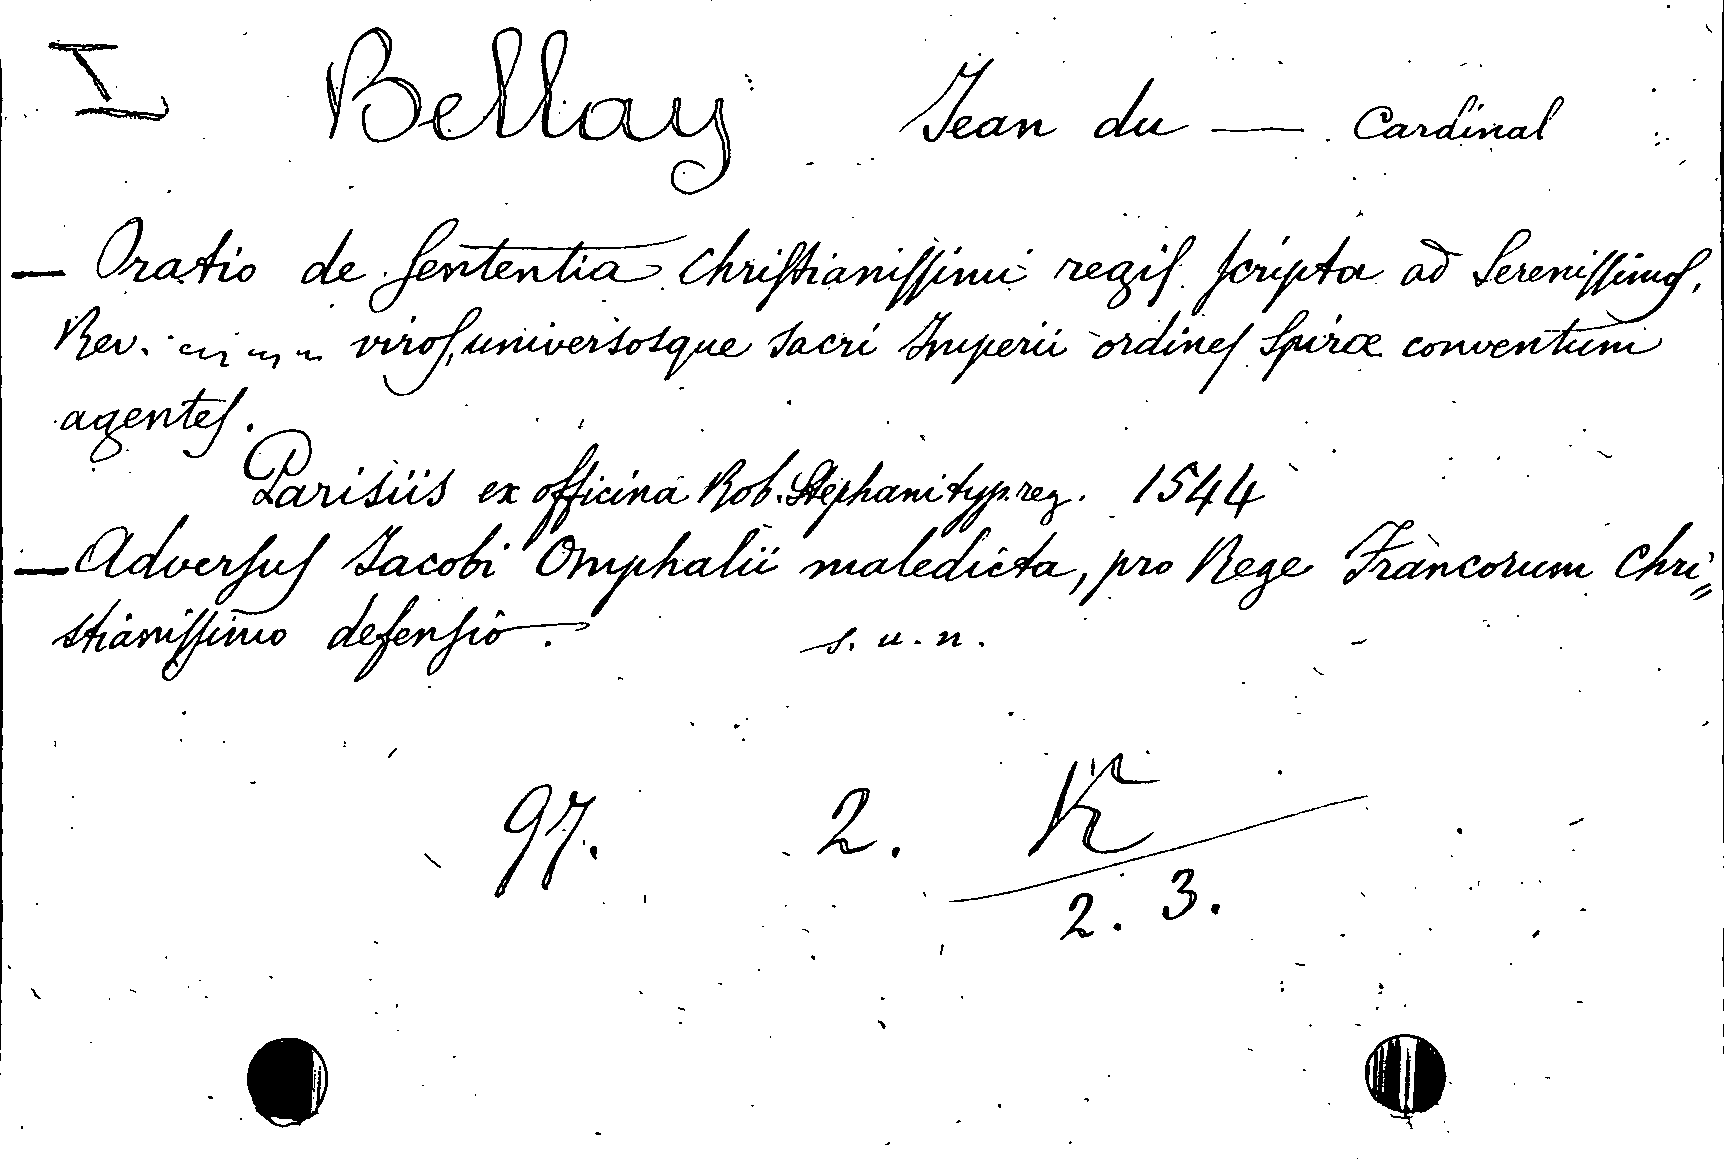 I Bellay Jean du — Cardinal
— Oratio de sententia Christianissimi regis scripta ad Serenissimos,
Rev. viros, universosque sacri Imperii ordines Spiræ conventum
agentes.
Parisiis ex officina Rob. Stephani typ. reg. 1544
— Adversus Jacobi Omphalii maledicta, pro Rege Francorum Chri=
stianissimo defensio. s. u. n.
97. 2. K
2. 3.